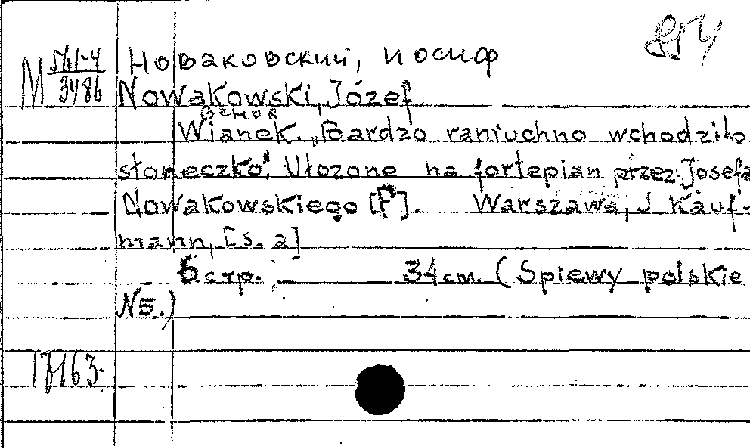 М 561-4
3486
Новаковский, Иосиф
854
Nowakowski, Józef
Wianek. „Bardzo raniuchno wchodziło
słoneczko". Ułozone na fortepian przez Josefa
Nowakowskiego [F]. Warszawa, J. Kauf-
mann, [s. a]
6 стр. 34 см. (Spiewy polskie
N5.)